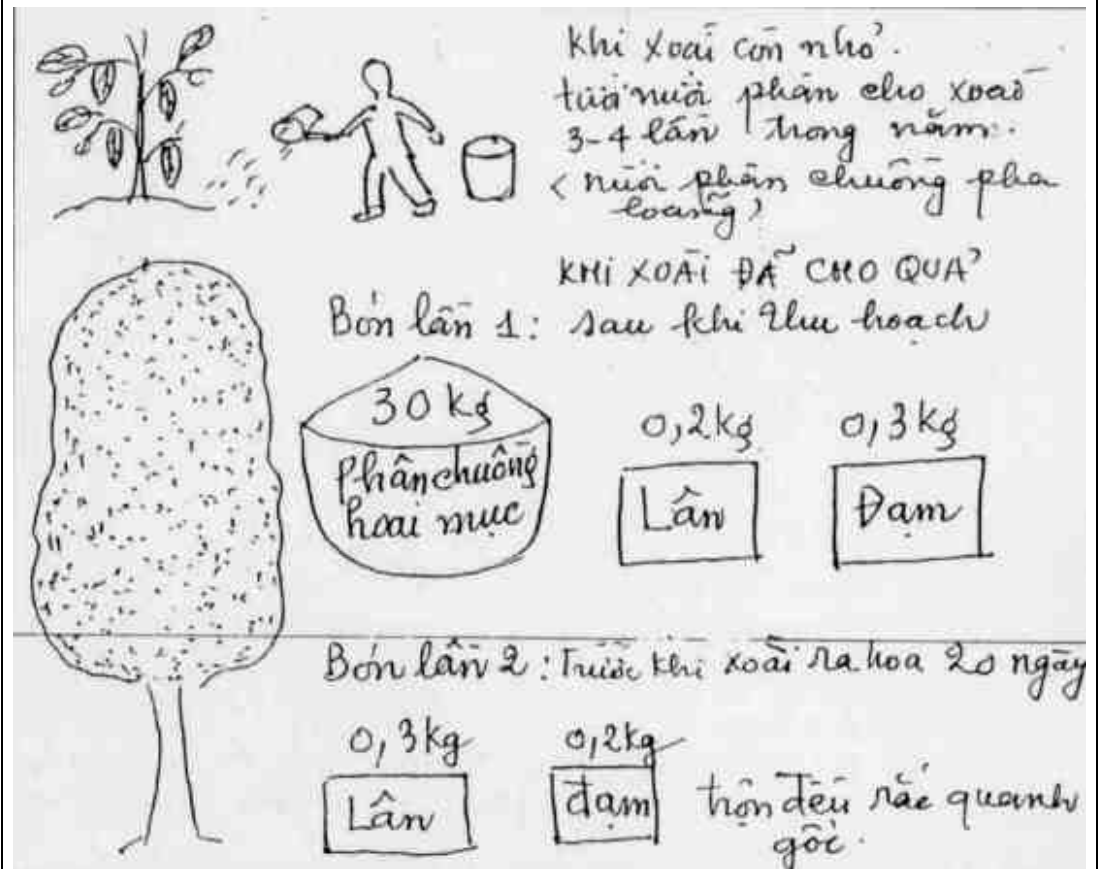 Khi xoài còn nhỏ.
tưới nước phân cho xoài
3-4 lần trong năm.
(nước phân chuồng pha
loãng)
KHI XOÀI ĐÃ CHO QUẢ
Bón lần 1: Sau khi thu hoạch
30 kg
Phân chuồng
hoai mục
0,2kg
Lân
0,3kg
Đạm
Bón lần 2: Trước khi xoài ra hoa 20 ngày
0,3kg
Lân
0,2kg
đạm
trộn đều rắc quanh
gốc.